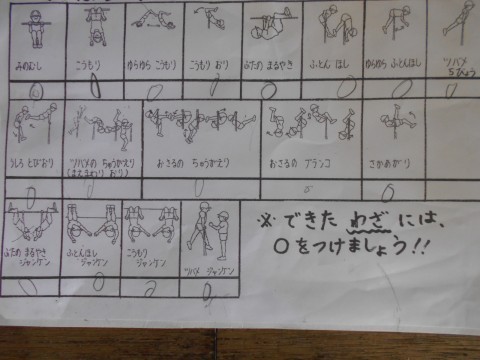 みのむし
こうもり
ゆらゆら こうもり
こうもり おり
ぶたの まるやき
ふとん ほし
ゆらゆら ふとんほし
ツバメ
5びょう
うしろ とびおり
ツバメの ちゅうがえり
(まえまわり おり)
おさるの ちゅうがえり
おさるの ブランコ
さかあがり
ぶたの まるやき
ジャンケン
ふとんほし
ジャンケン
こうもり
ジャンケン
ツバメ ジャンケン
※できた わざ には、
○をつけましょう!!